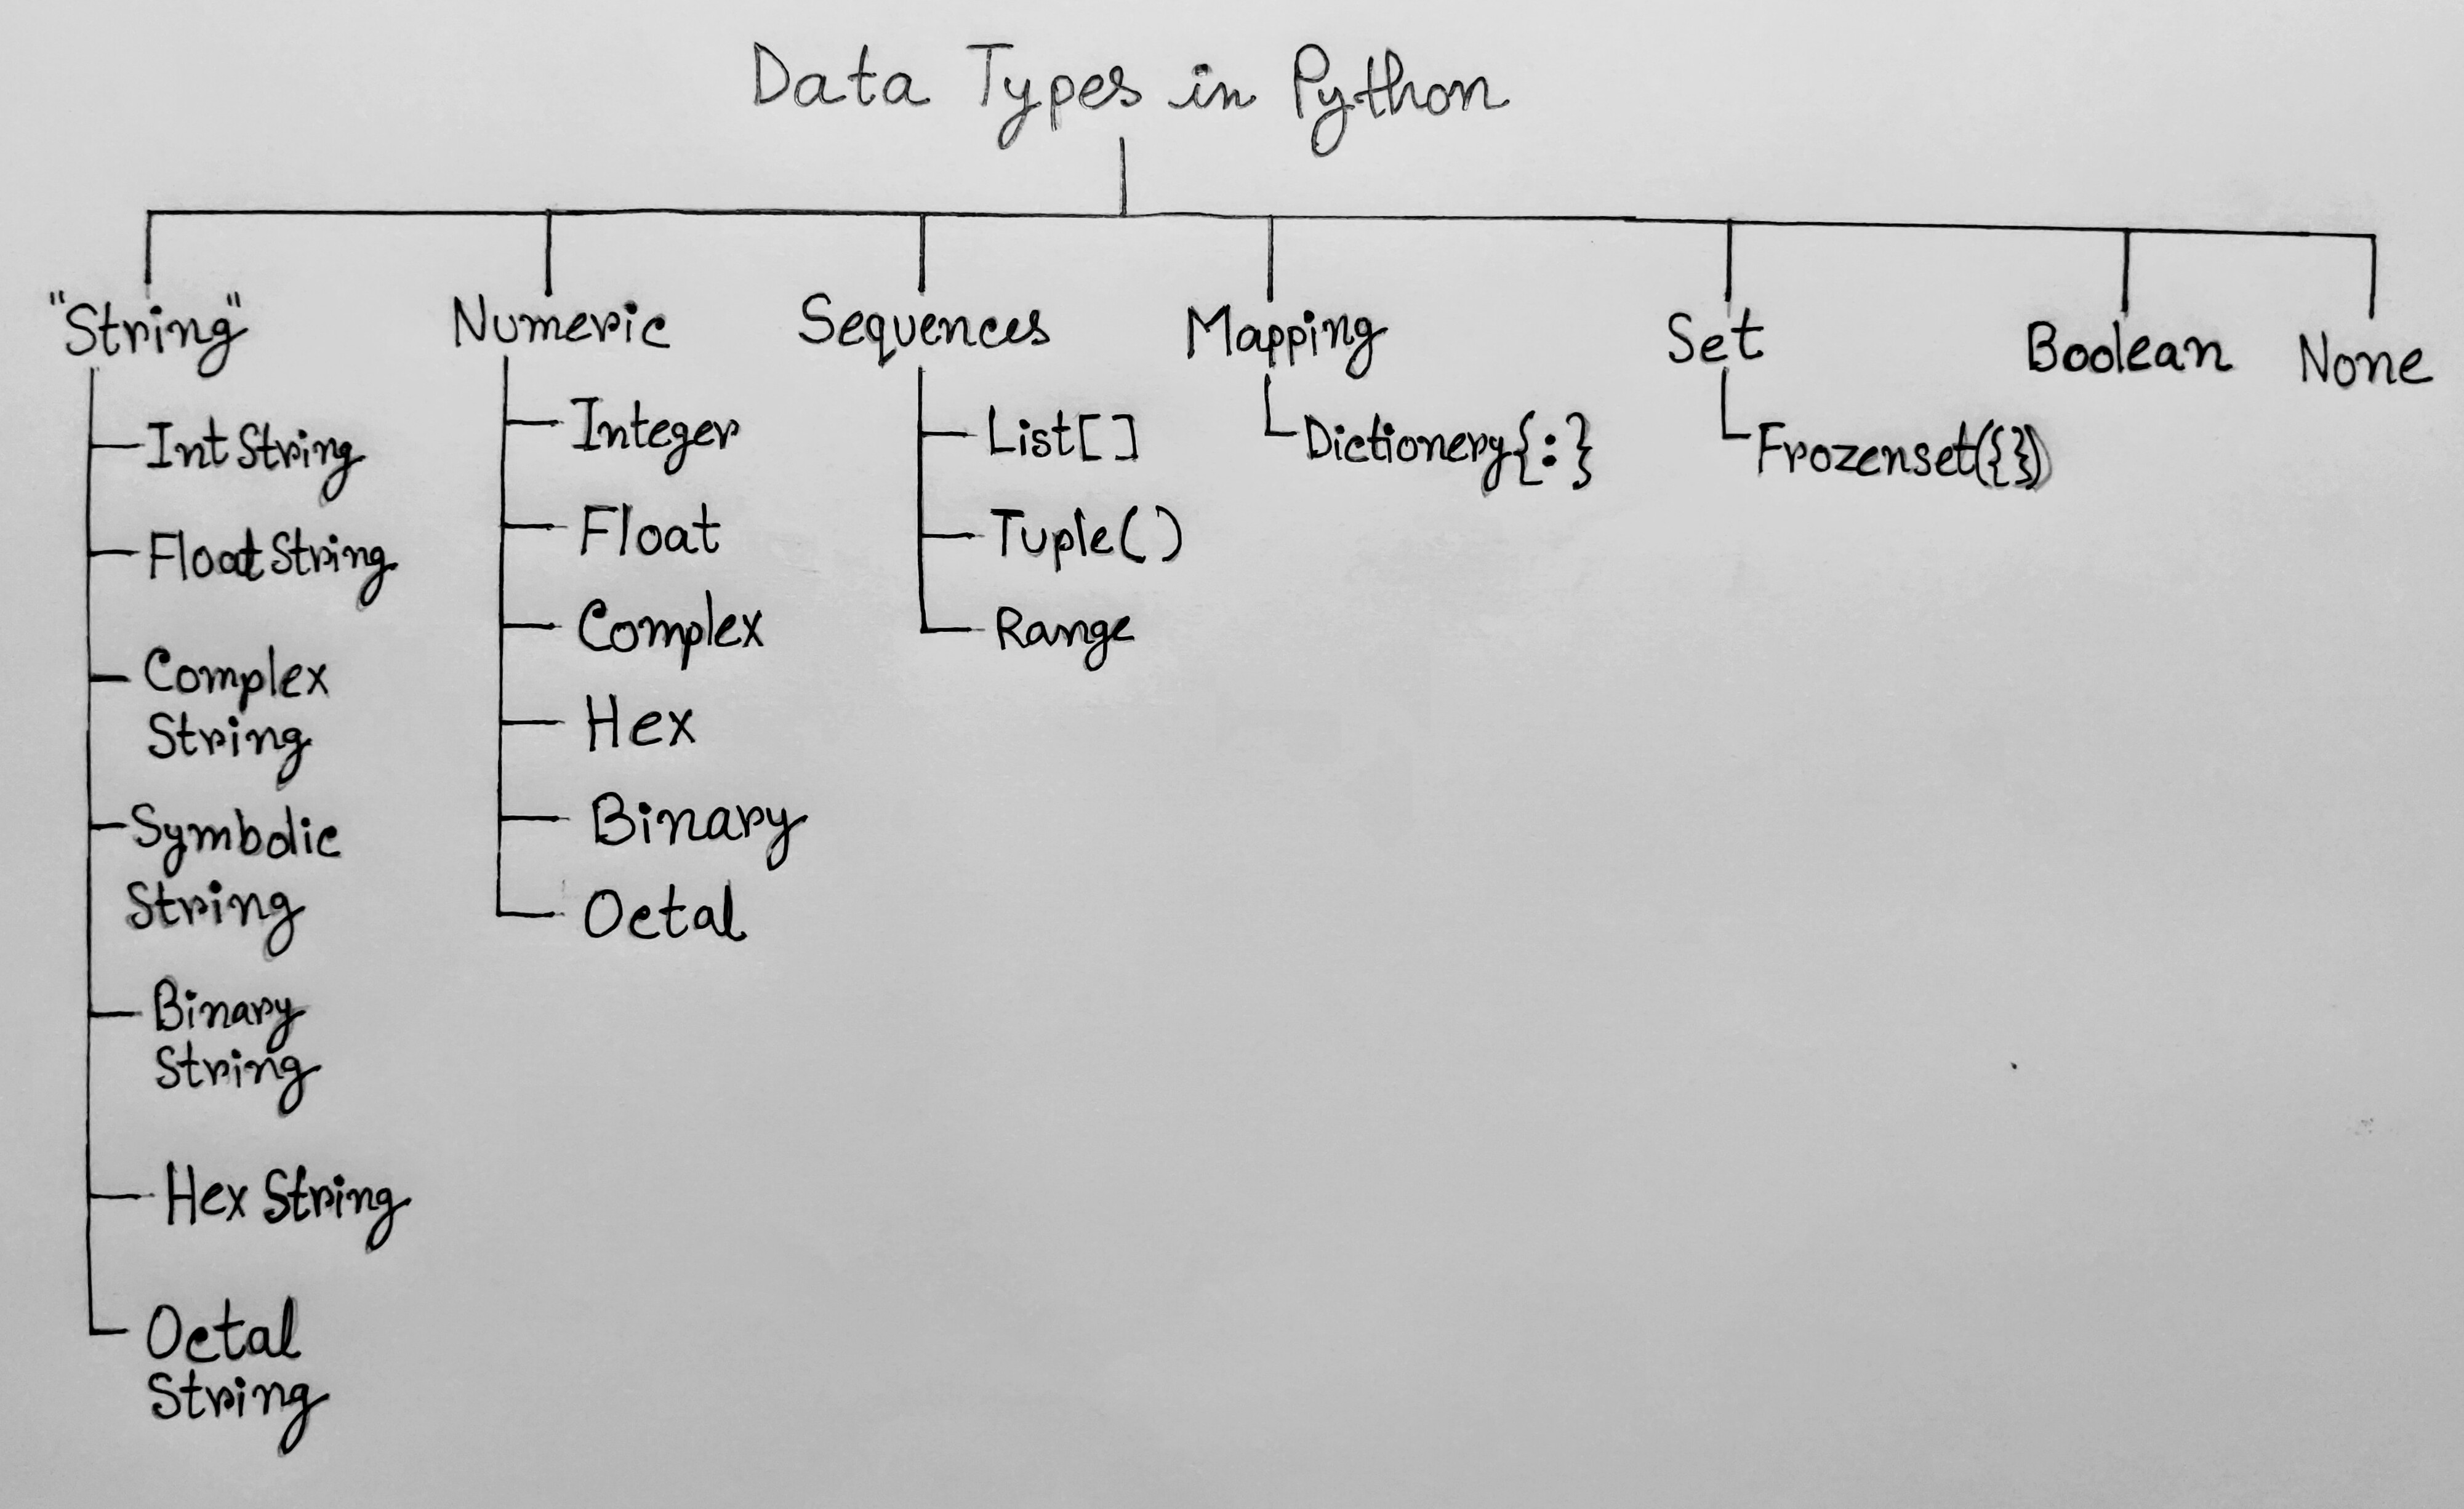 Data Types in Python
"String"
Int String
Float String
Complex
String
Symbolic
String
Binary
String
Hex String
Octal
String
Numeric
Integer
Float
Complex
Hex
Binary
Octal
Sequences
List[ ]
Tuple( )
Range
Mapping
Dictionery{:}
Set
Frozenset({})
Boolean
None